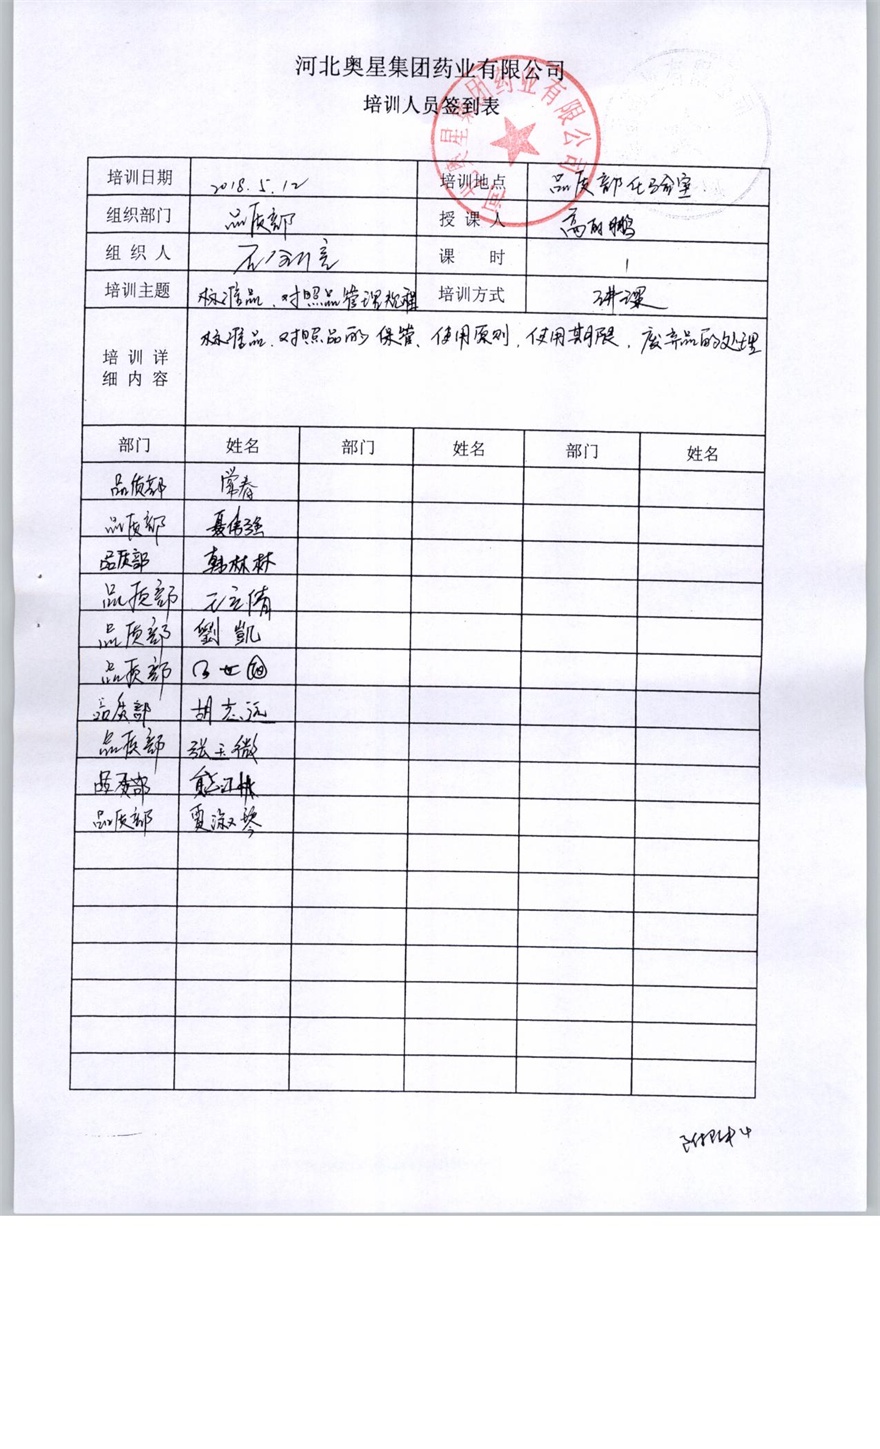 河北奥星集团药业有限公司
培训人员签到表
培训日期 2018.5.12 培训地点 品质部化验室
组织部门 品质部 授课人 高 鹏
组织人 课时 1
培训主题 标准品、对照品管理规程 培训方式 讲课
培训详细内容 标准品、对照品的保管、使用原则、使用期限、废弃品的处理
部门 姓名 部门 姓名 部门 姓名
品质部 常春
品质部 聂伟强
品质部 韩林林
品质部
品质部 劉凱
品质部
品质部 胡志远
品质部 张立微
品质部
品质部 贾淑琴
附件4